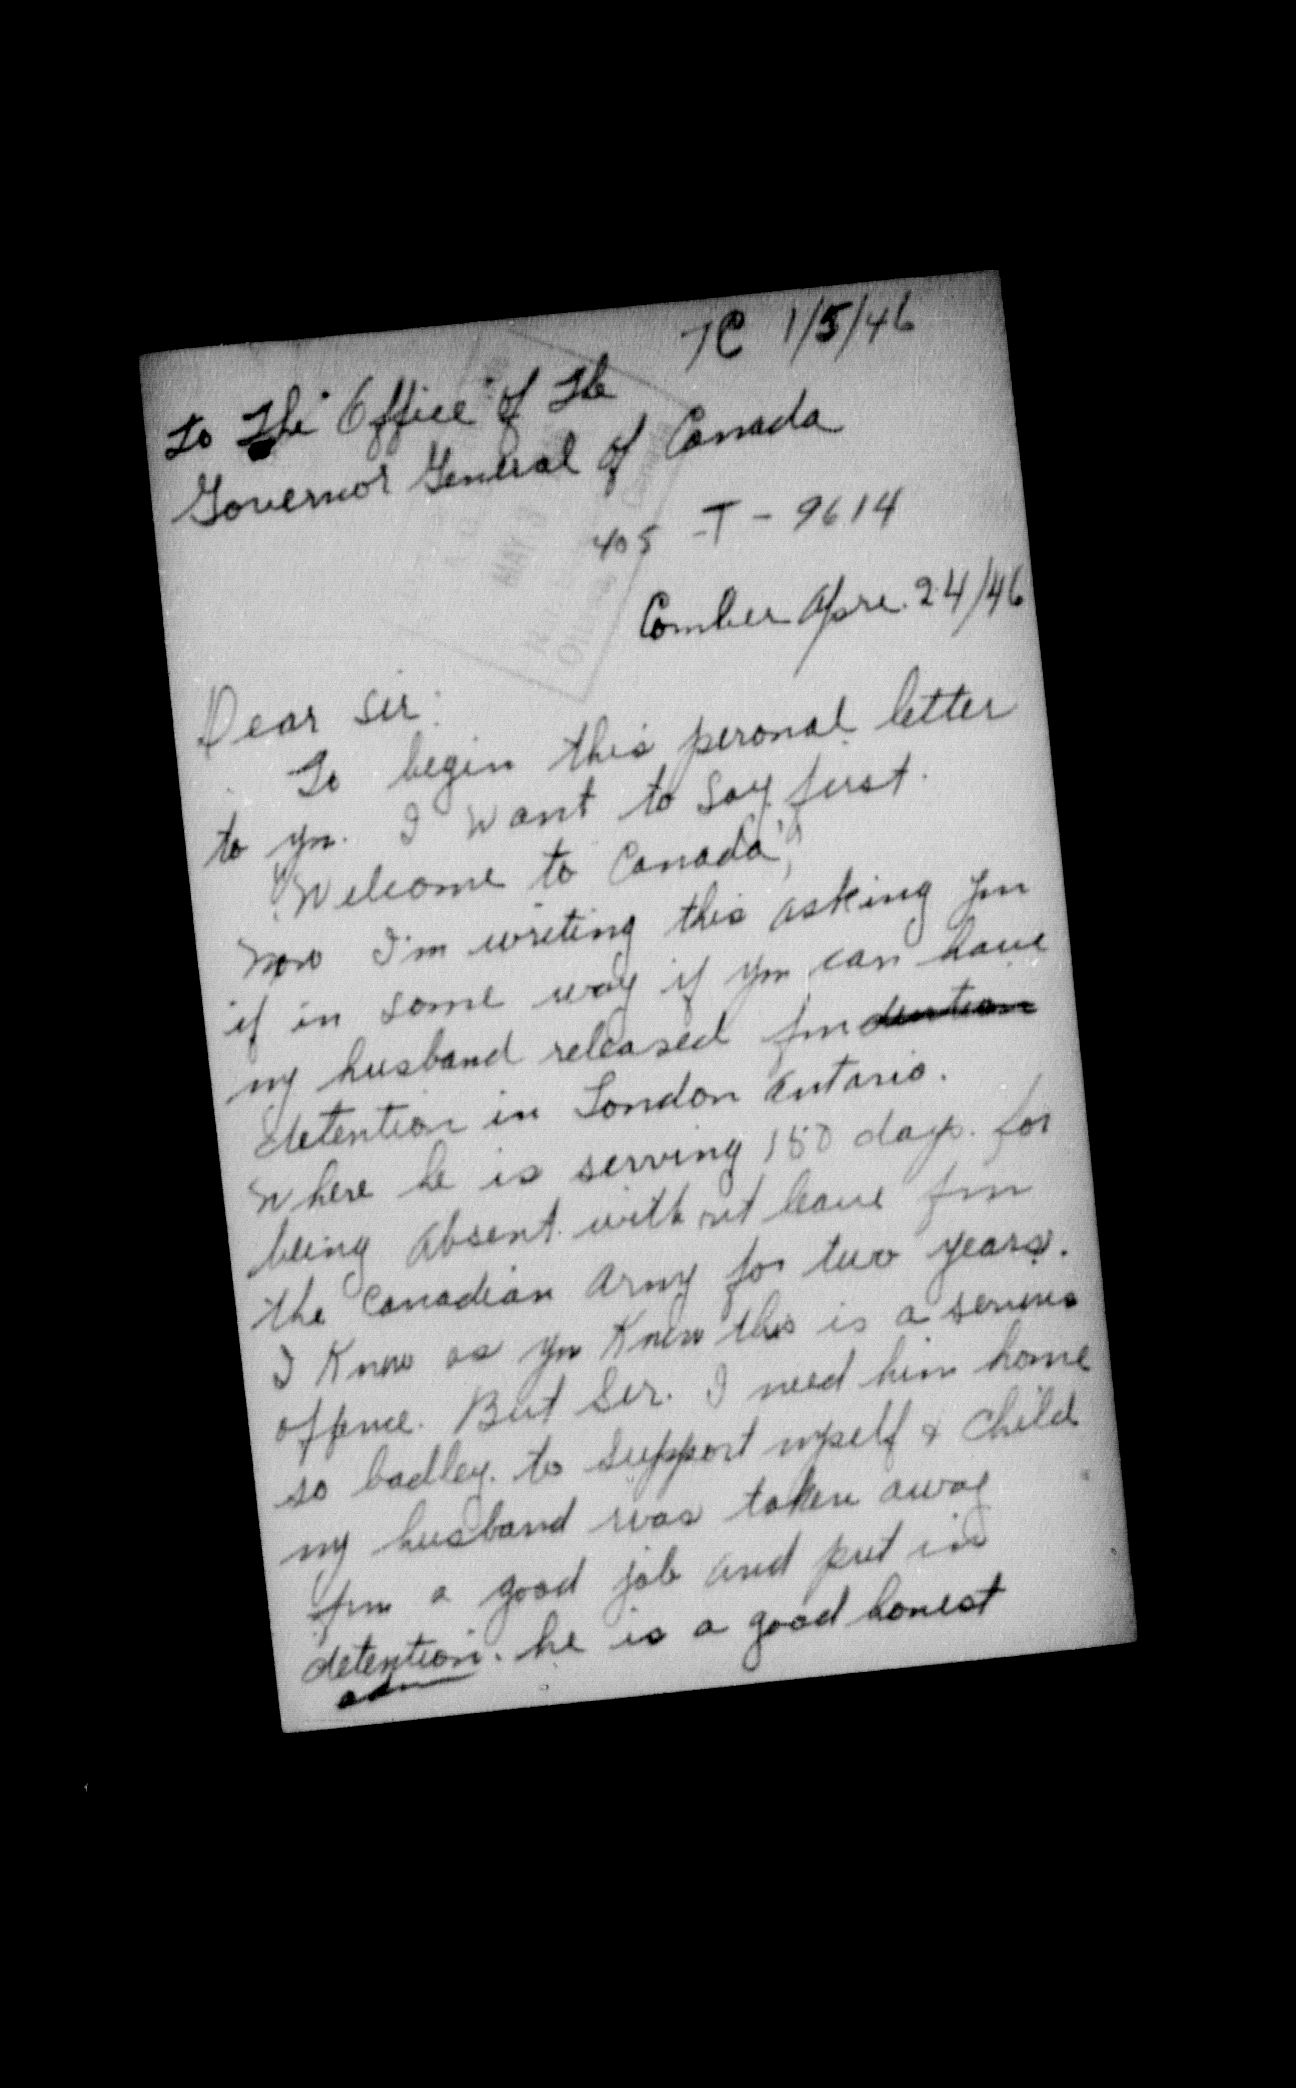 7C 1/5/46
To The Office of The
Governor General of Canada
405 -T- 9614
Comber Apre. 24/46
MAY
Dear Sir:
To begin this peronal letter
to you. I want to say first.
"Welcome to Canada,"
Now I'm writing this asking you
if in some way if you can have
my husband released from
detention in London Ontario.
Where he is serving 150 days. for
being absent without leave from
the Canadian Army for two years.
I know as you know this is a serious
offence. But Ser. I need him home
so badley. to support myself & child
my husband was taken away
from a good job and put in
detention. he is a good honest